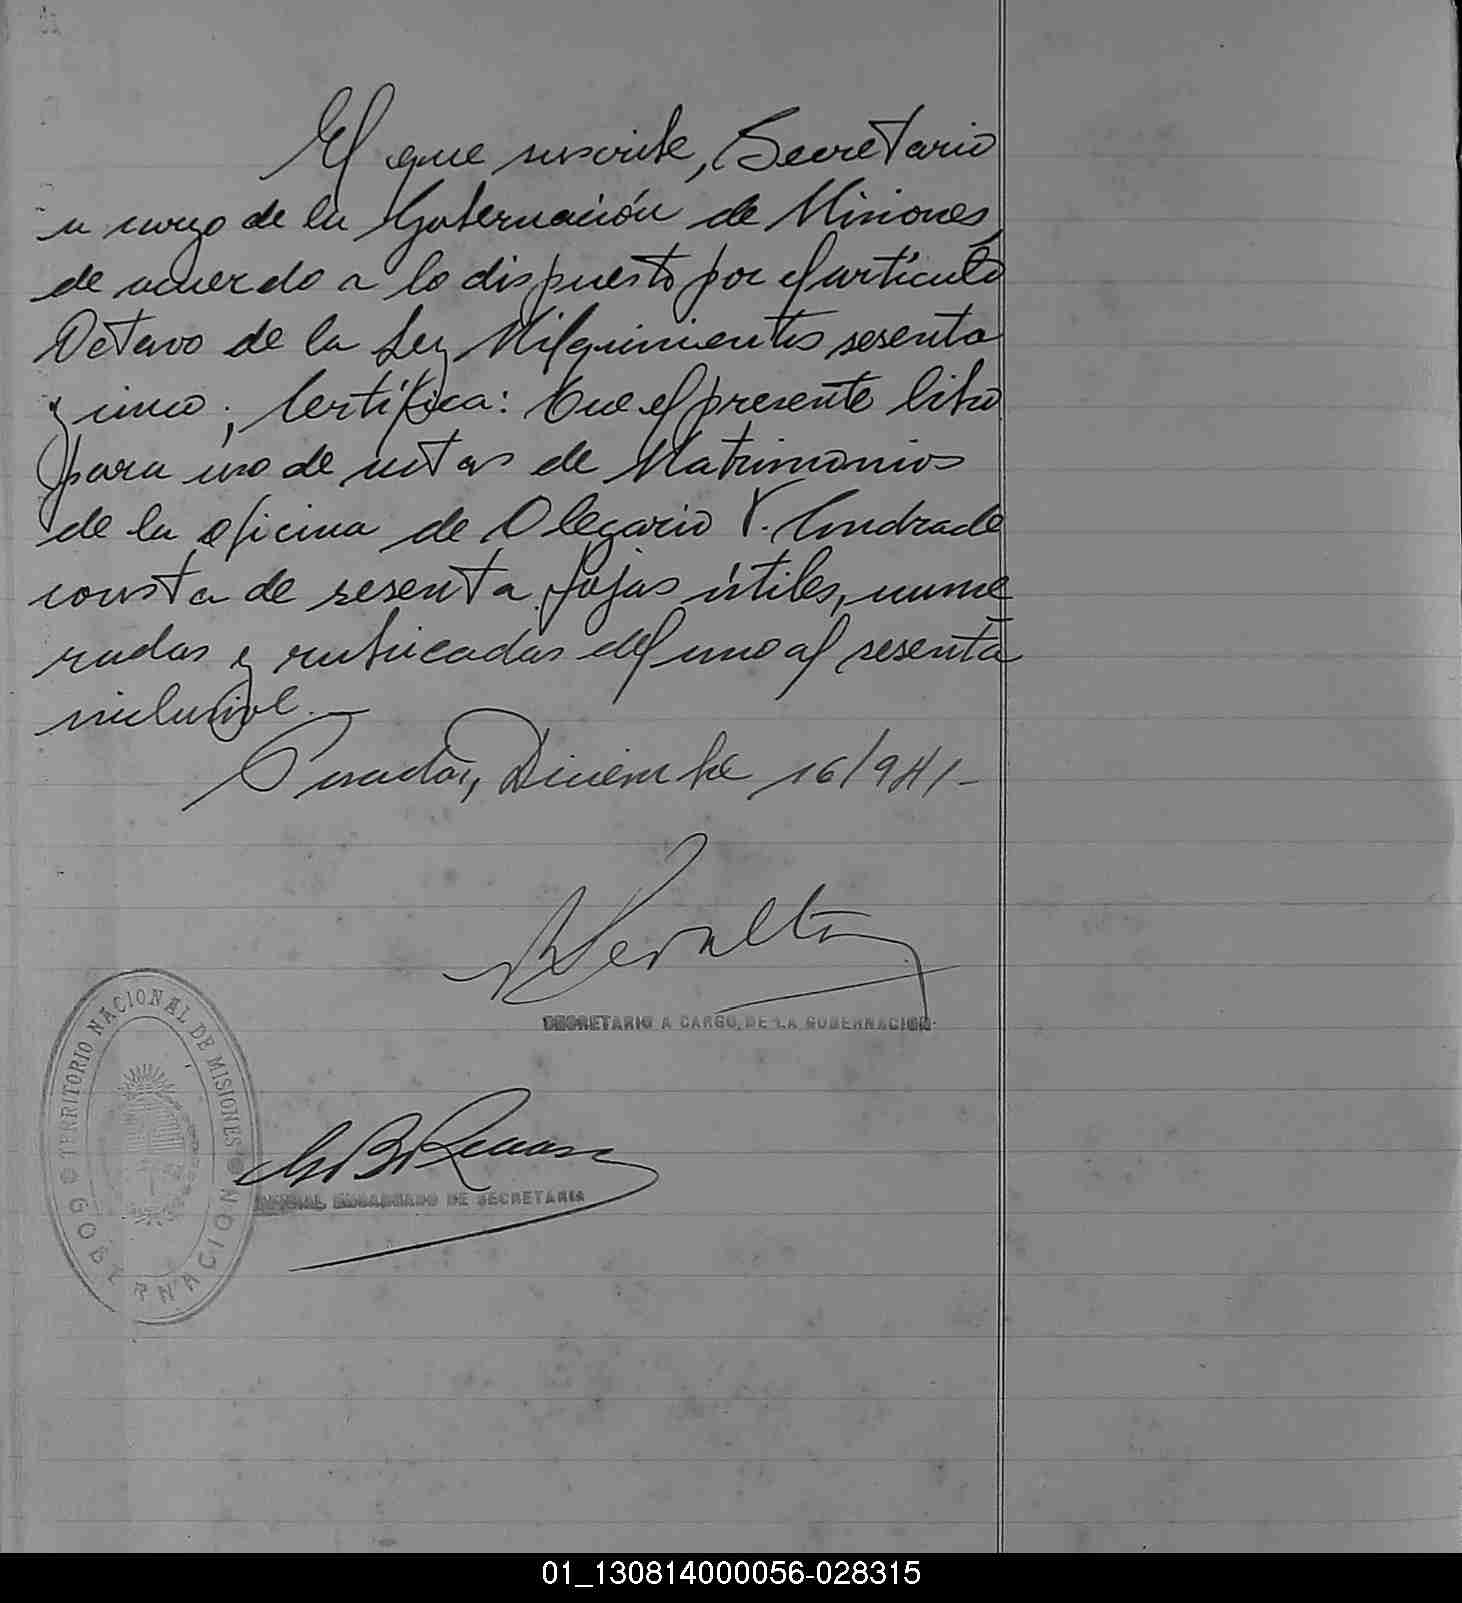 El que suscribe, Secretario
a cargo de la Gobernación de Misiones,
de acuerdo a lo dispuesto por el artículo
Octavo de la Ley Milquinientos sesenta
y cinco; Certifica: Que el presente libro
para uso de actas de Matrimonios
de la oficina de Olegario V. Andrade
consta de sesenta fojas útiles, nume
radas y rubricadas del uno al sesenta
inclusive.—
Posadas, Diciembre 16/941-
Peralta
SECRETARIO A CARGO DE LA GOBERNACION
TERRITORIO NACIONAL DE MISIONES
GOBERNACION
OFICIAL ENCARGADO DE SECRETARIA
01_130814000056-028315